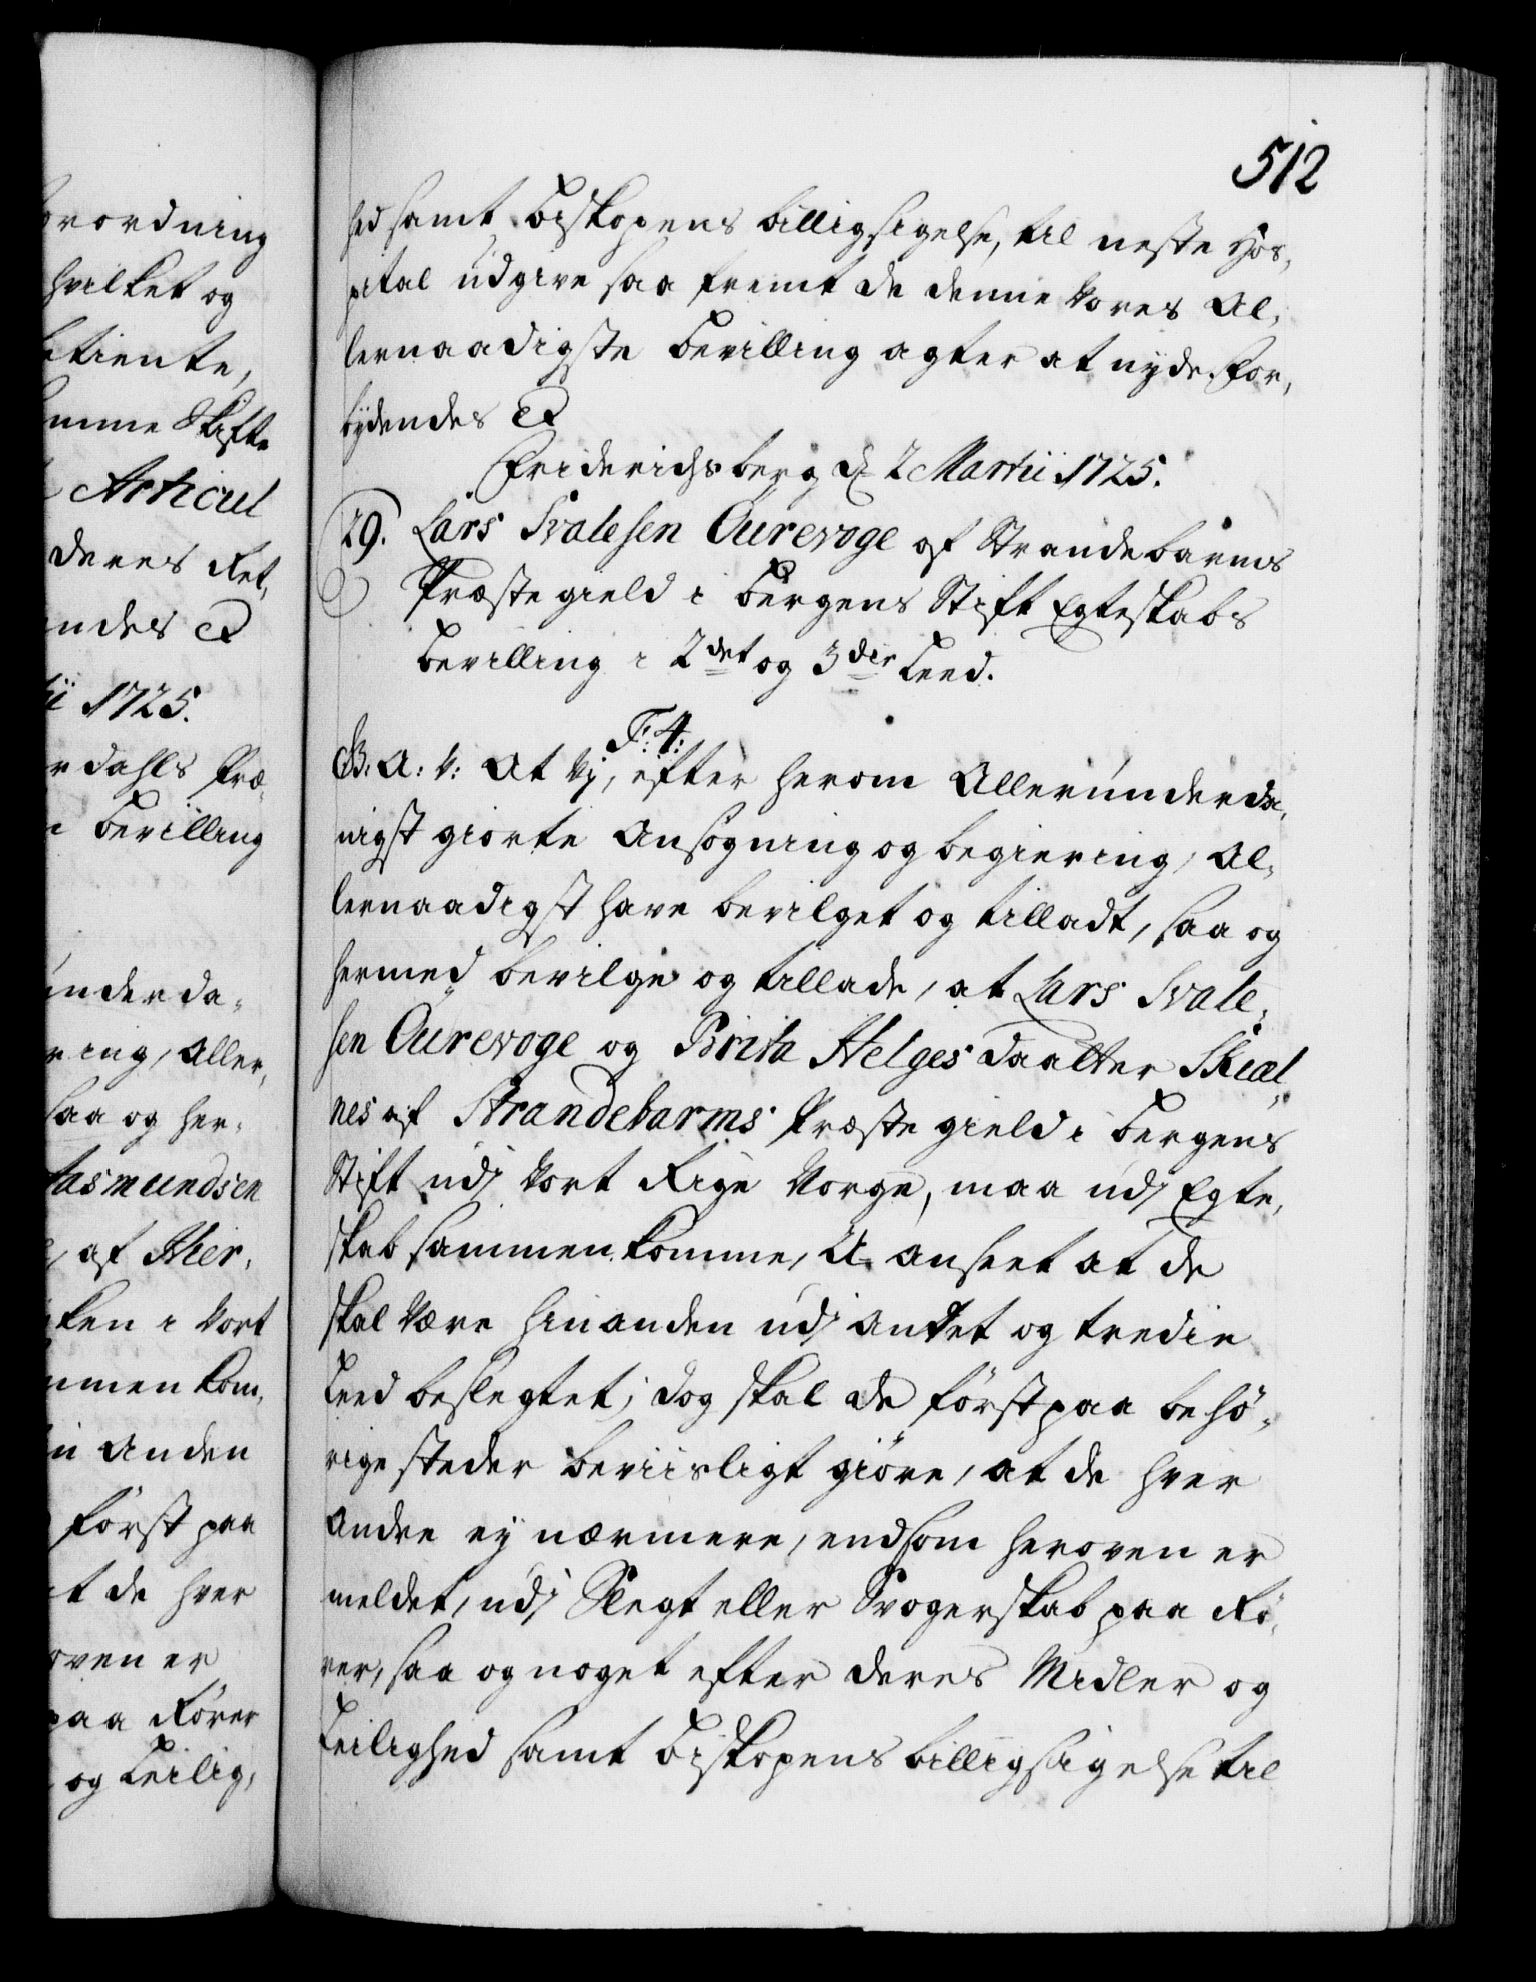 512
orordning
hvilket og
etiente,
Skifte
Articul
deres Ret,
ndes &
ii 1725.
dahls Præ¸
Bevilling
underda¸
ring, Aller¸
saa og her¸
Rasmundsen
, af Hier¸
i Vort
mmen kom¸
Anden
først paa
t de hver
oven er
paa Rører
og Leilig¸
hed samt Biskopens billigsigelse, til neste Hos¸
pital udgive saa fremt de denne Vores Al¸
lernaadigste Bevilling agter at nyde. For¸
bydendes &
Friderichsberg d. 2 Martii 1725.
29. Lars Svalesen Ourevoge af Strandebarms
Præstegield i Bergens Stift Egteskabs
Bevilling i 2det og 3die Leed.
F: 4:
G. A: V: At Vj, efter herom Allerunderda¸
nigst giorte Ansøgning og begiering, Al¸
lernaadigst have bevilget og tilladt, saa og
hermed bevilge og tillade, at Lars Svale¸
sen Ourevoge og Brita Helges daatter Skiæl¸
nes af Strandebarms Præstegield i Bergens
Stift udj Vort Rige Norge, maa udj Egte¸
skab sammenkomme, U-anseet at de
skal være hinanden udj andet og tredie
Leed beslegtet; dog skal de først paa behø¸
rige steder beviisligt giøre, at de hver
andre ey nærmere, end som heroven er
meldet, udj Slegt eller Svogerskab paa Rø¸
rer, saa og noget efter deres Midler og
Leilighed samt Biskopens billigsigelse til